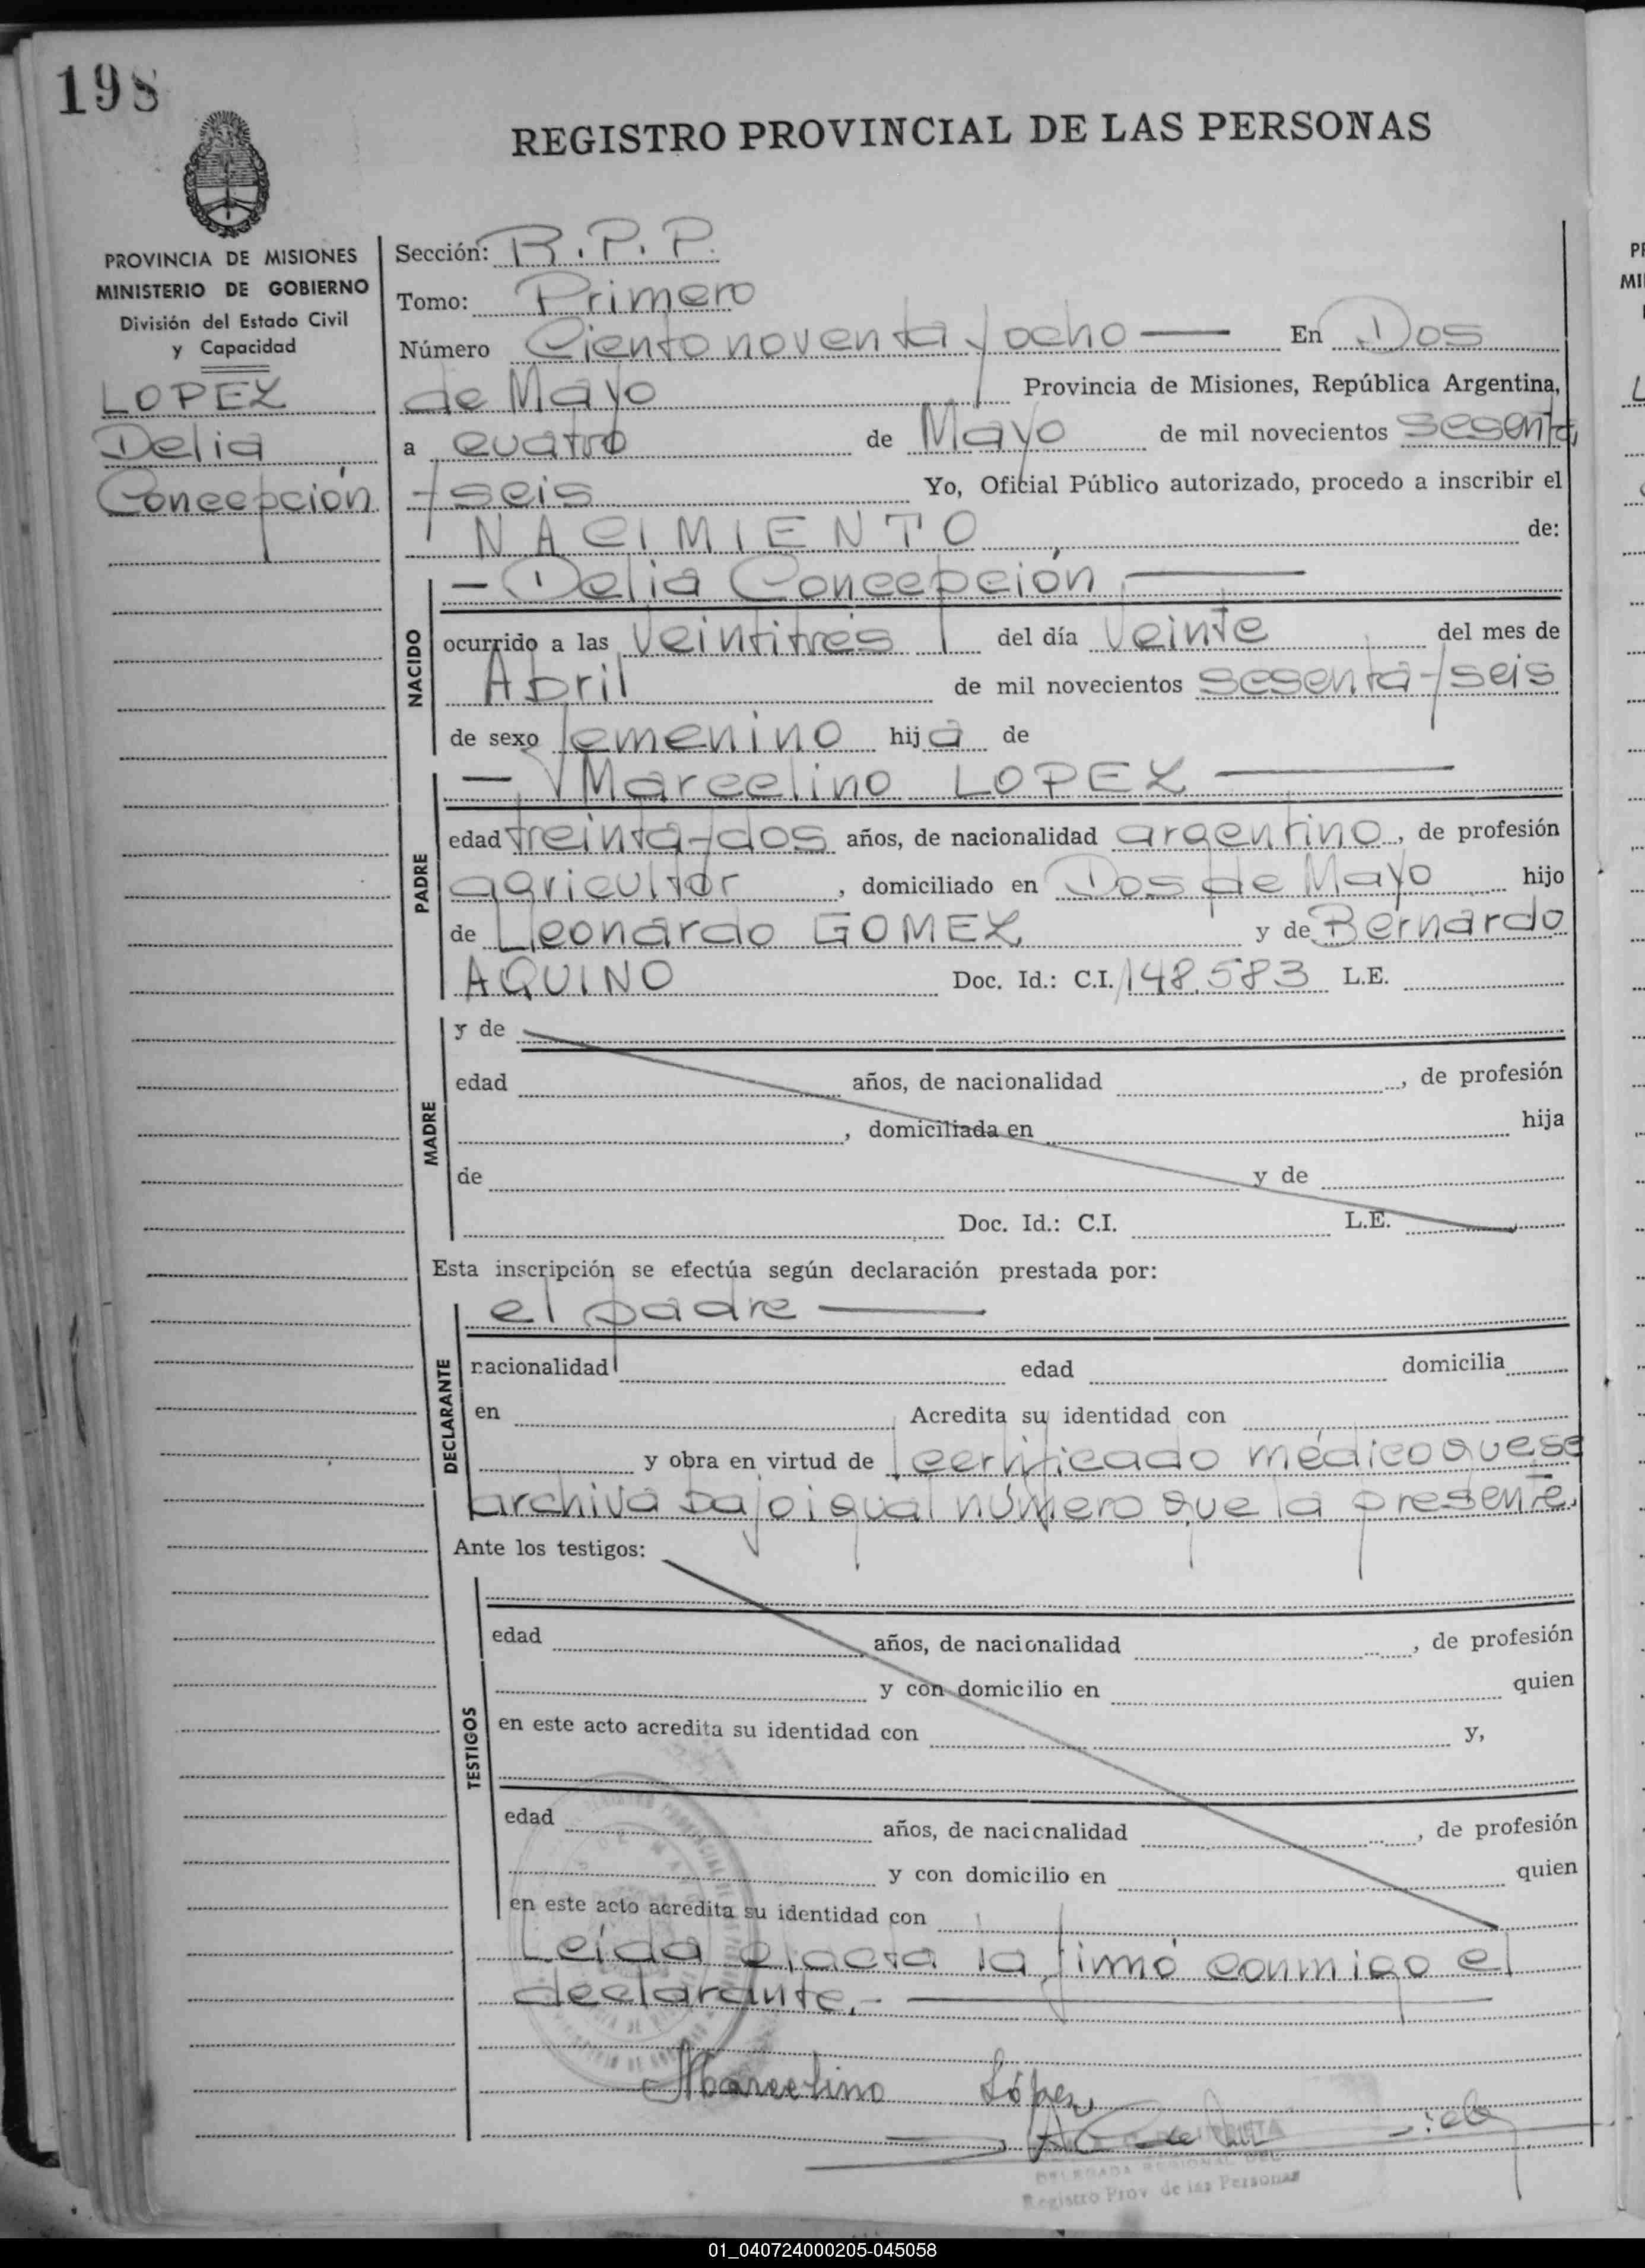 198
REGISTRO PROVINCIAL DE LAS PERSONAS
PROVINCIA DE MISIONES
MINISTERIO DE GOBIERNO
División del Estado Civil
y Capacidad
LOPEZ
Delia
Concepción
Sección: R.P.P.
Tomo: Primero
Número Ciento noventa y ocho — En Dos
de Mayo Provincia de Misiones, República Argentina,
a cuatro de Mayo de mil novecientos sesenta
y seis Yo, Oficial Público autorizado, procedo a inscribir el
NACIMIENTO de:
NACIDO
— Delia Concepción —
ocurrido a las veintitres del día veinte del mes de
Abril de mil novecientos sesenta y seis
de sexo femenino hija de
PADRE
— Marcelino LOPEZ —
edad treinta y dos años, de nacionalidad argentino, de profesión
agricultor, domiciliado en Dos de Mayo hijo
de Leonardo GOMEZ y de Bernardo
AQUINO Doc. Id.: C.I. 148.583 L.E.
MADRE
y de
edad años, de nacionalidad , de profesión
, domiciliada en hija
de y de
Doc. Id.: C.I. L.E.
Esta inscripción se efectúa según declaración prestada por:
DECLARANTE
el padre —
nacionalidad edad domicilia
en Acredita su identidad con
y obra en virtud de certificado médico que se
archiva bajo igual número que la presente.
Ante los testigos:
TESTIGOS
edad años, de nacionalidad , de profesión
y con domicilio en quien
en este acto acredita su identidad con y,
edad años, de nacionalidad , de profesión
y con domicilio en quien
en este acto acredita su identidad con
Leída el acta la firmó conmigo el
declarante.- —
Marcelino López
DELEGADA REGIONAL DEL
Registro Prov. de las Personas
01_040724000205-045058